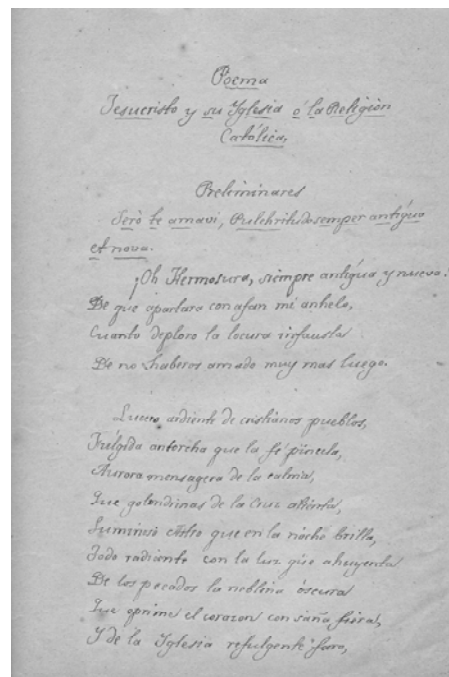 Poema
Jesucristo y su Yglesia ó la Religion
Católica,
Preliminares
Seró te amavi, Pulchritudo semper antigua
et nova.
¡Oh Hermosura, siempre antigua y nueva!
De que apartara con afan mi anhelo,
Cuanto deploro la locura infausta
De no haberos amado muy mas luego.
Lucero ardiente de cristianos pueblos,
Fúlgida antorcha que la fé
Aurora mensagera de la calma,
Que golondrinas de la Cruz
Luminoso Astro que en la noche brilla,
Todo radiante con la luz que ahuyenta
De los pecados la neblina óscura
Que oprime el corazon con saña fiera,
Y de la Yglesia refulgente faro,